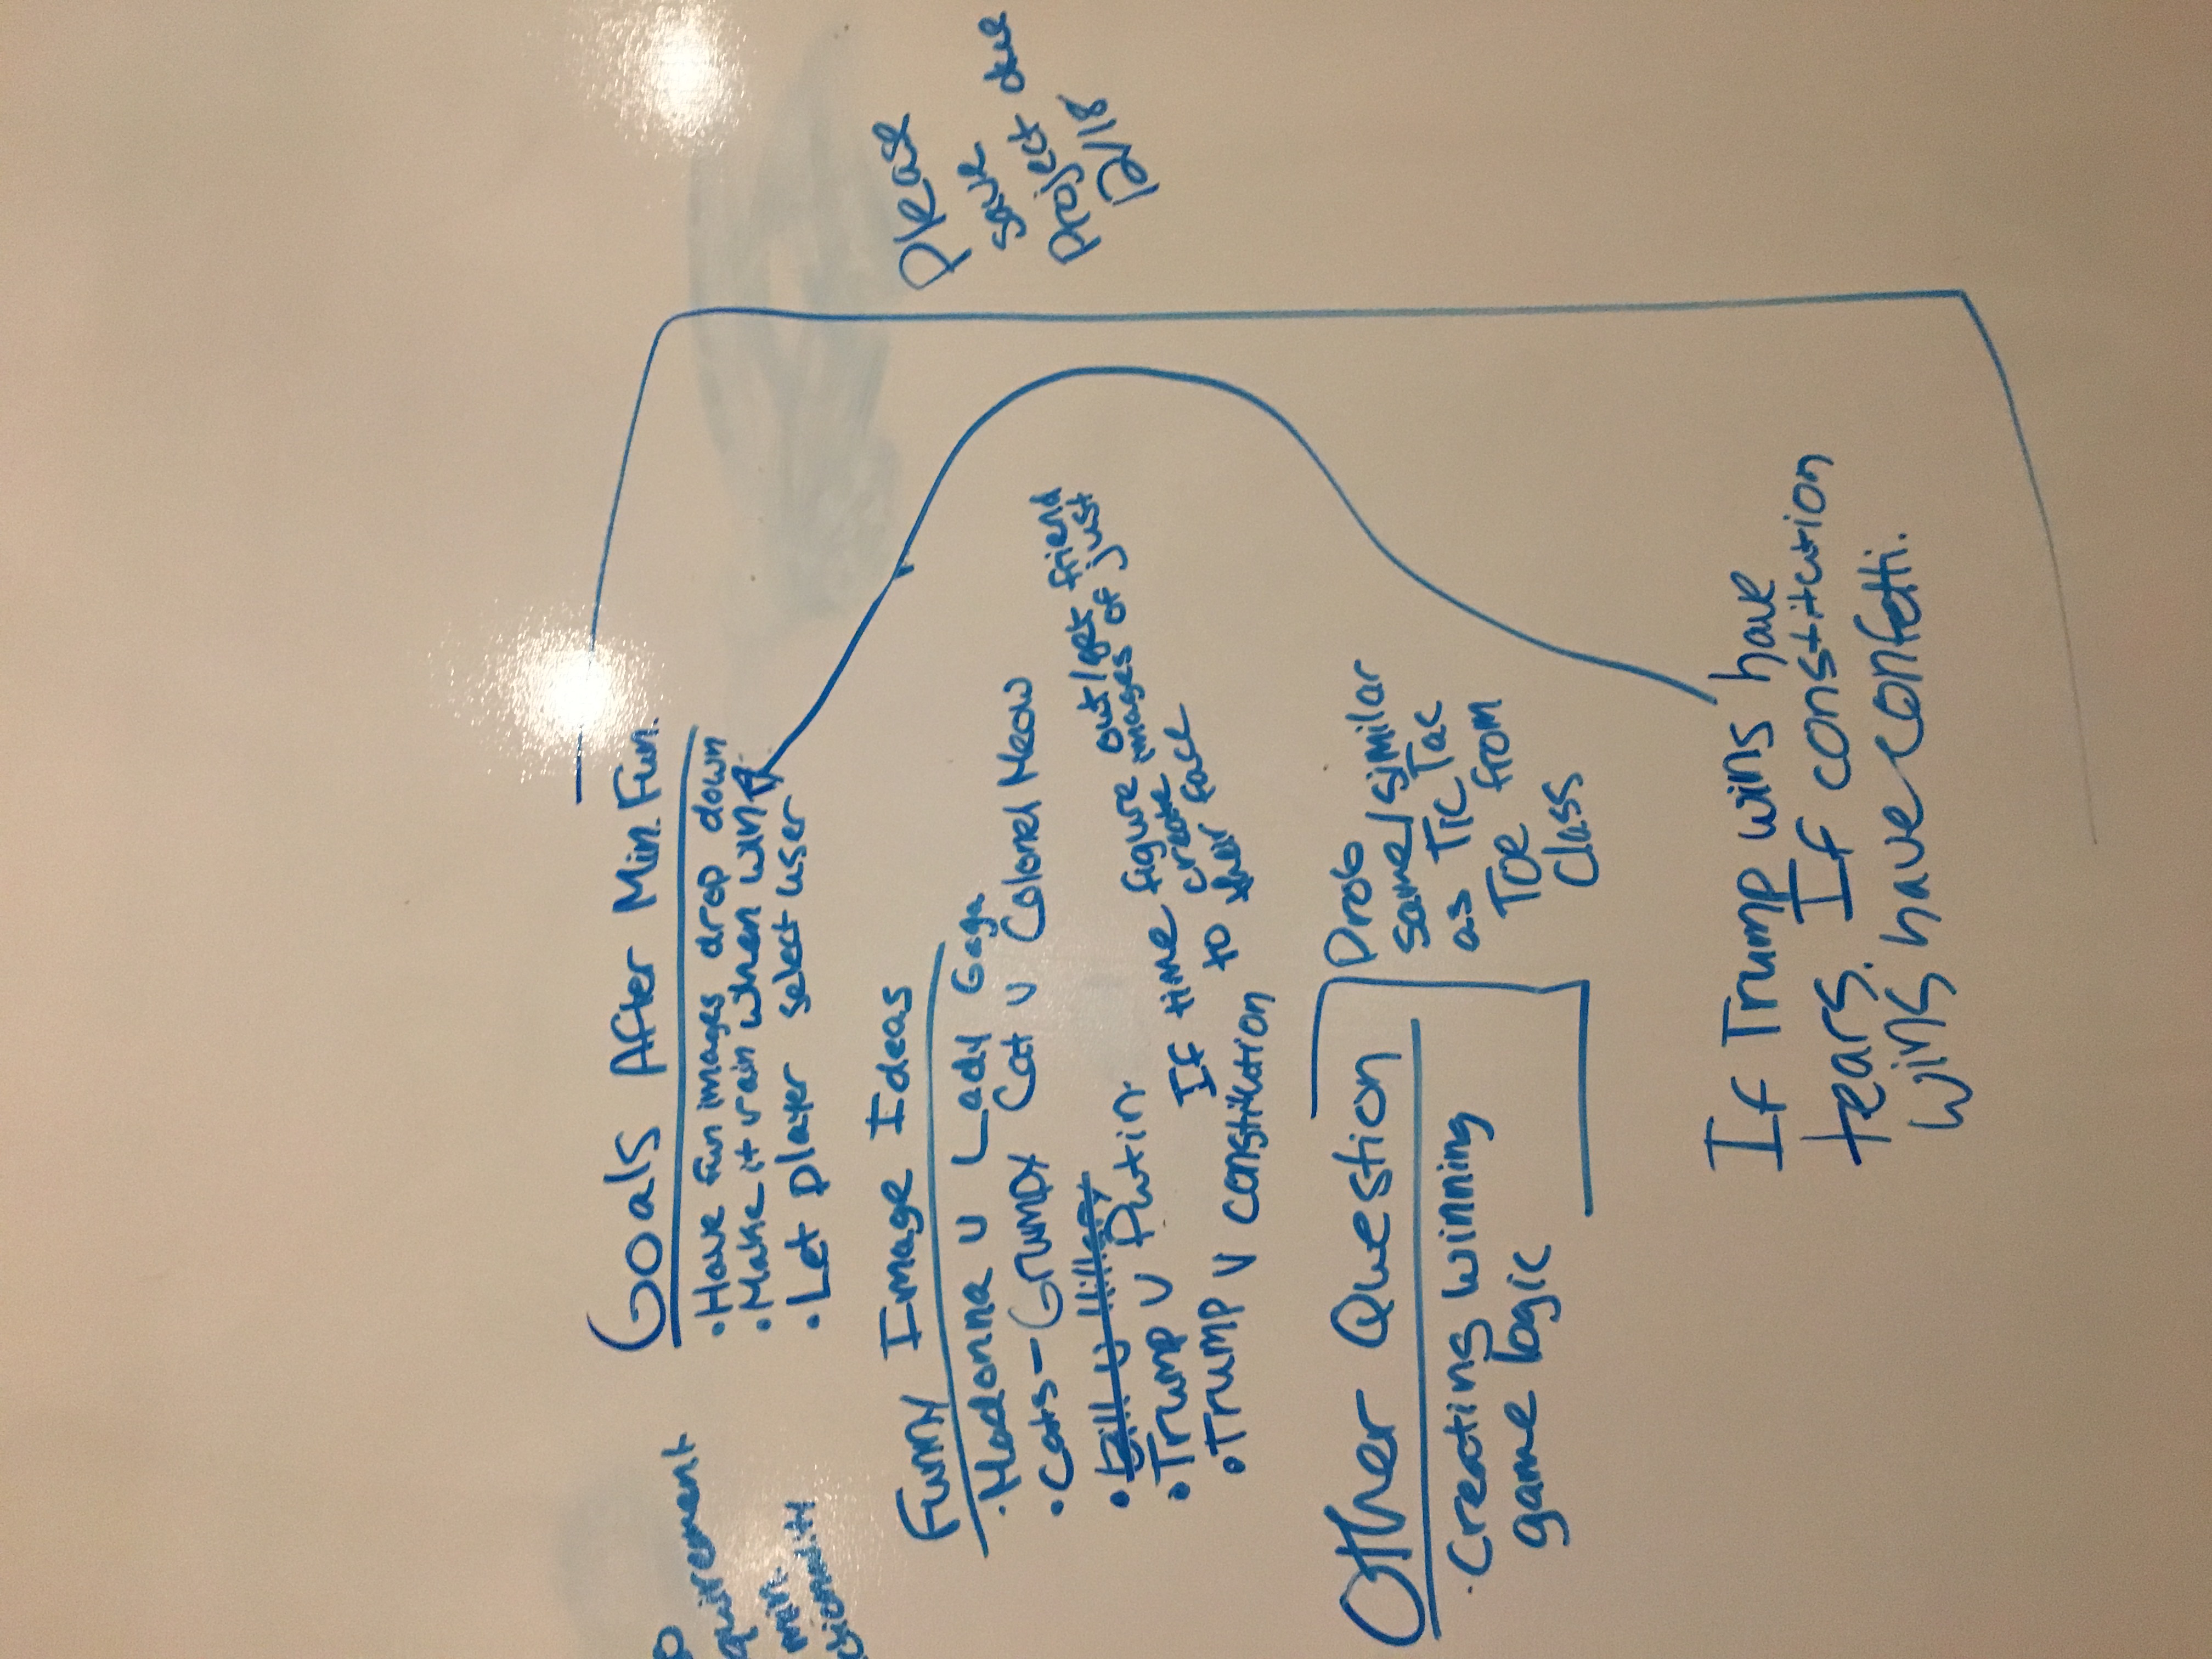 Goals After Min. Fun.
• Have fun images drop down
• Make it rain when win
• Let player select user
quirement
min.
ctionality
Funny Image Ideas
• Madonna v Lady Gaga
• Cats - Grumpy Cat v Colonel Meow
• Bill v Hillary
• Trump v Putin
• Trump v constitution
If time figure out/get friend
to create images of just
their face
Other Question
• Creating winning
game logic
Prob
same/similar
as Tic Tac
Toe from
Class
If Trump wins have
tears. If constitution
wins have confetti.
Please
save
Project due
12/18